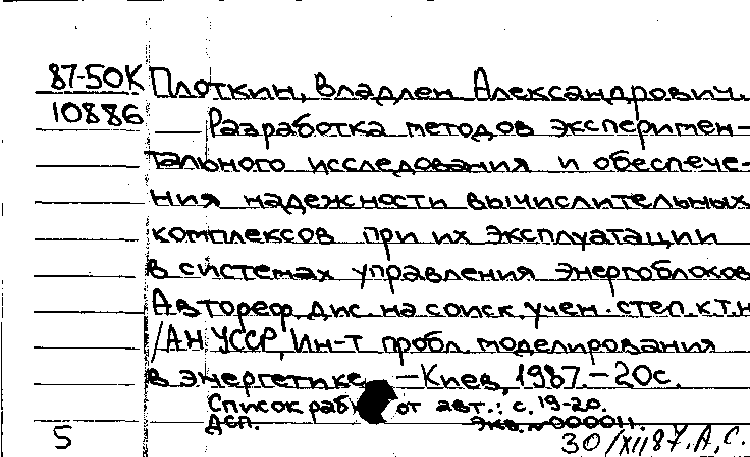 87-50К Плоткин, Владлен Александрович.
10886 — Разработка методов эксперимен-
тального исследования и обеспече-
ния надежности вычислительных
комплексов при их эксплуатации
в системах управления энергоблоков
Автореф. дис. на соиск. учен. степ. к.т.н
/АН УССР, Ин-т пробл. моделирования
в энергетике. — Киев, 1987. — 20 с.
Список раб от авт.: с. 19-20.
ДСП. Экз. № 000011.
5 30/XII 87. А. С.